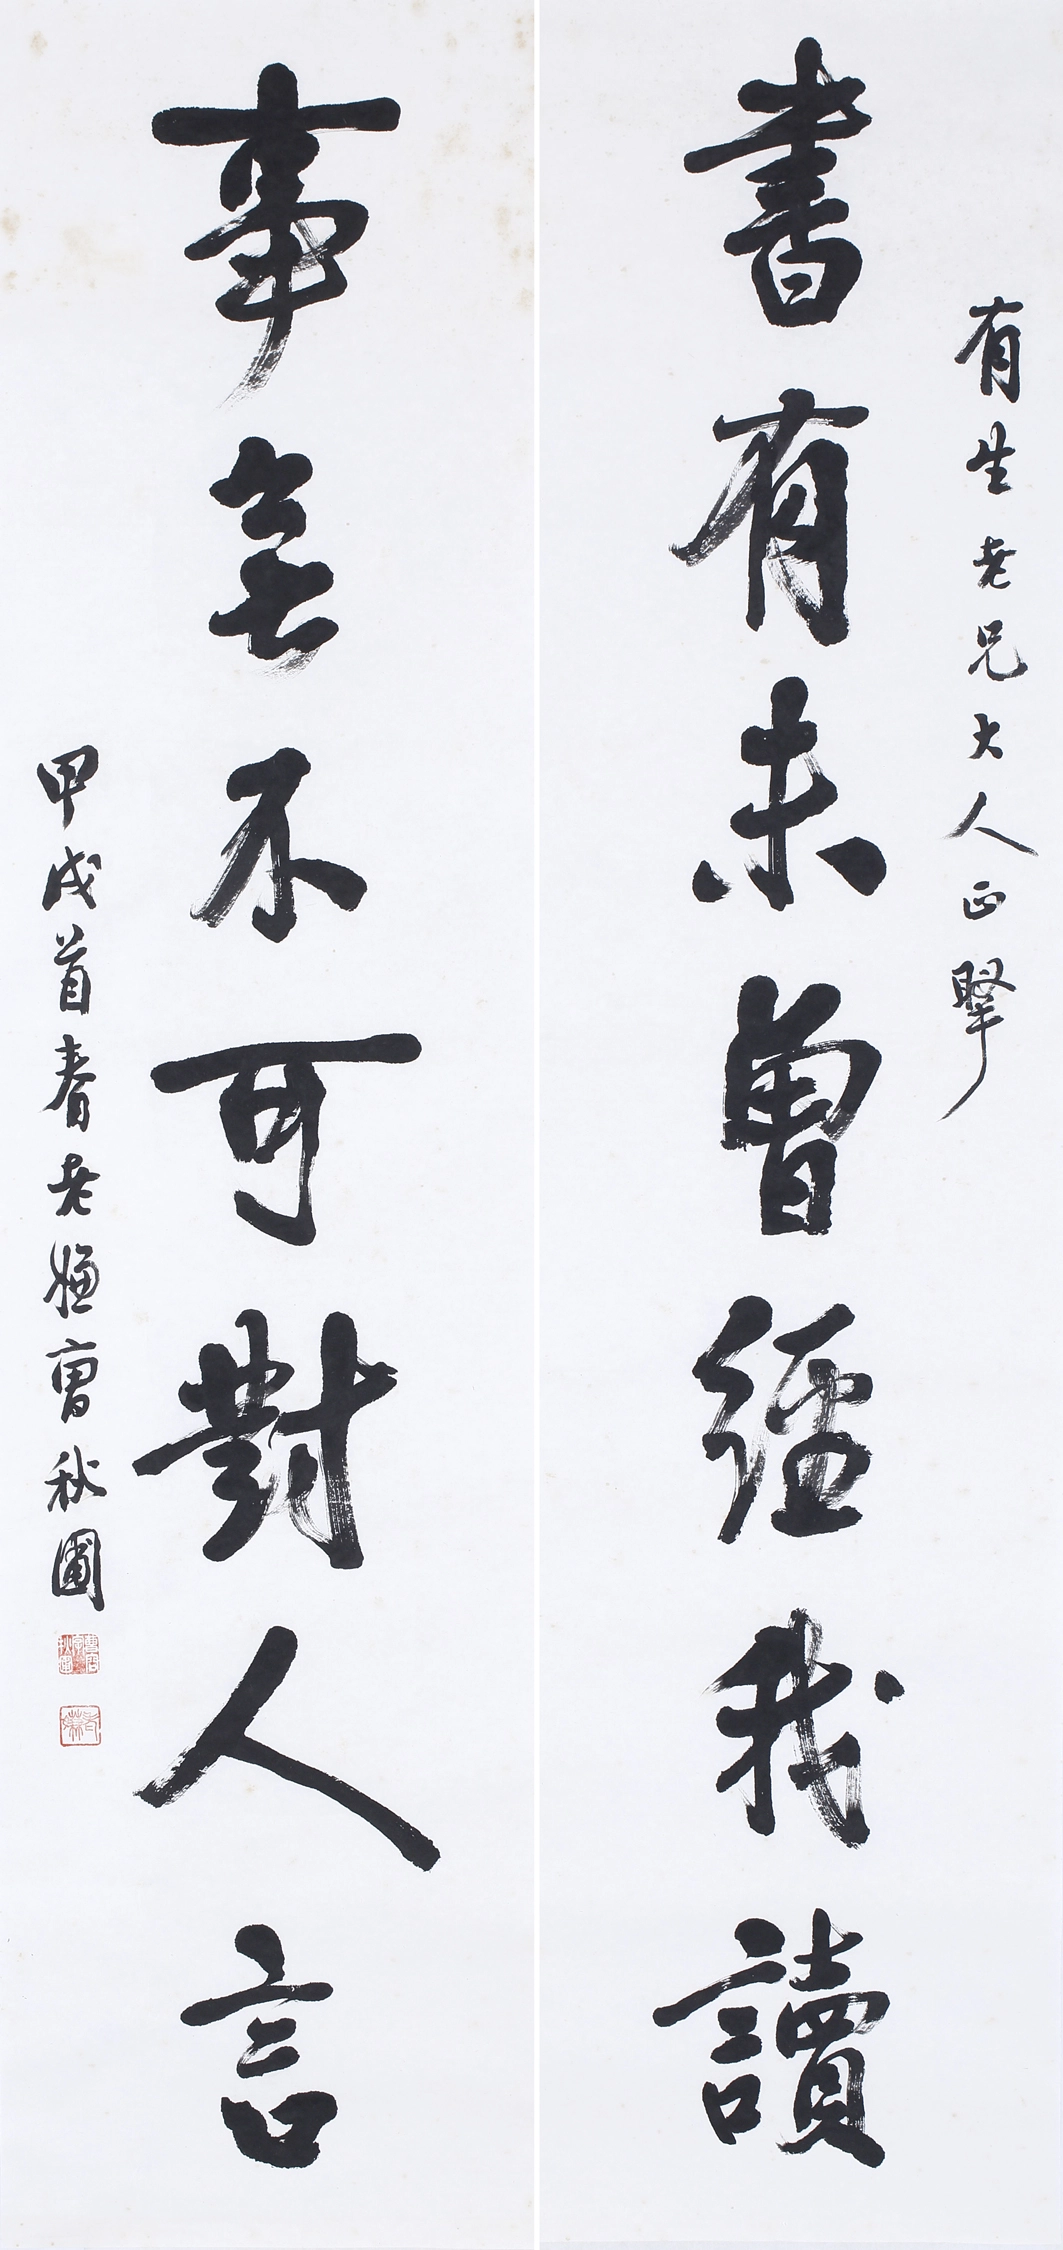 有生老兄大人正擘
書有未曾經我讀
事無不可對人言
甲戌首春老嫌曹秋圃